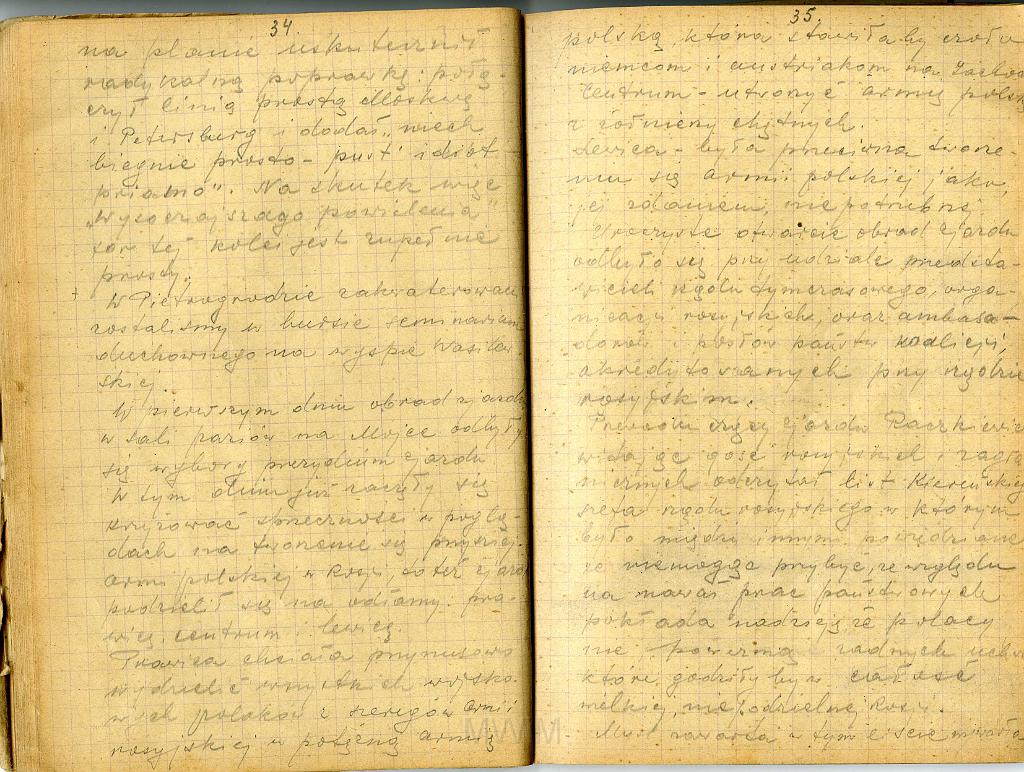 34.
na planie uskutecznił
radykalną poprawkę: połą-
czył linią prostą Moskwę
i Petersburg i dodał „niech
biegnie prosto – pust' idiot
priamo". Na skutek więc
„wysoczajszago powielenia"
tor tej kolei jest zupełnie
prosty.
W Pietrogrodzie zakwaterowani
zostaliśmy w bursie seminarium
duchownego na wyspie Wasilew-
skiej.
W pierwszym dniu obrad zjazdu
w sali paziów na Mojce odbyły
się wybory prezydium zjazdu
W tym dniu już zaczęły się
krzyżować sprzeczności w poglą-
dach na tworzenie się przyszłej
armii polskiej w Rosji, to też zjazd
podzielił się na odłamy: pra-
wicę, centrum i lewicę.
Prawica chciała przymusowo
wydzielić wszystkich wojsko-
wych polaków z szeregów armii
rosyjskiej w potężną armię
35
polską, która stawiłaby czoło
niemcom i austriakom na zachodzie
Centrum – utworzyć armię polską
z żołnierzy chętnych.
Lewica – była przeciwna tworze-
niu się armii polskiej jako,
jej zdaniem, niepotrzebnej.
Uroczyste otwarcie obrad zjazdu
odbyło się przy udziale przedsta-
wicieli rządu tymczasowego, orga-
nizacji rosyjskich, oraz ambasa-
dorów i posłów państw koalicji,
akredytowanych przy rządzie
rosyjskim.
Przewodniczący zjazdu Raczkiewicz
witając gości rosyjskich i zagra-
nicznych odczytał list Kiereńskiego
szefa rządu rosyjskiego w którym
było między innymi powiedziane
że niemogąc przybyć, ze względu
na nawał prac państwowych
pokłada nadzieję że polacy
nie powezmą żadnych uchwał
które godziłyby w całość
wielkiej, niepodzielnej Rosji.
zawarta w tym liście
MWM